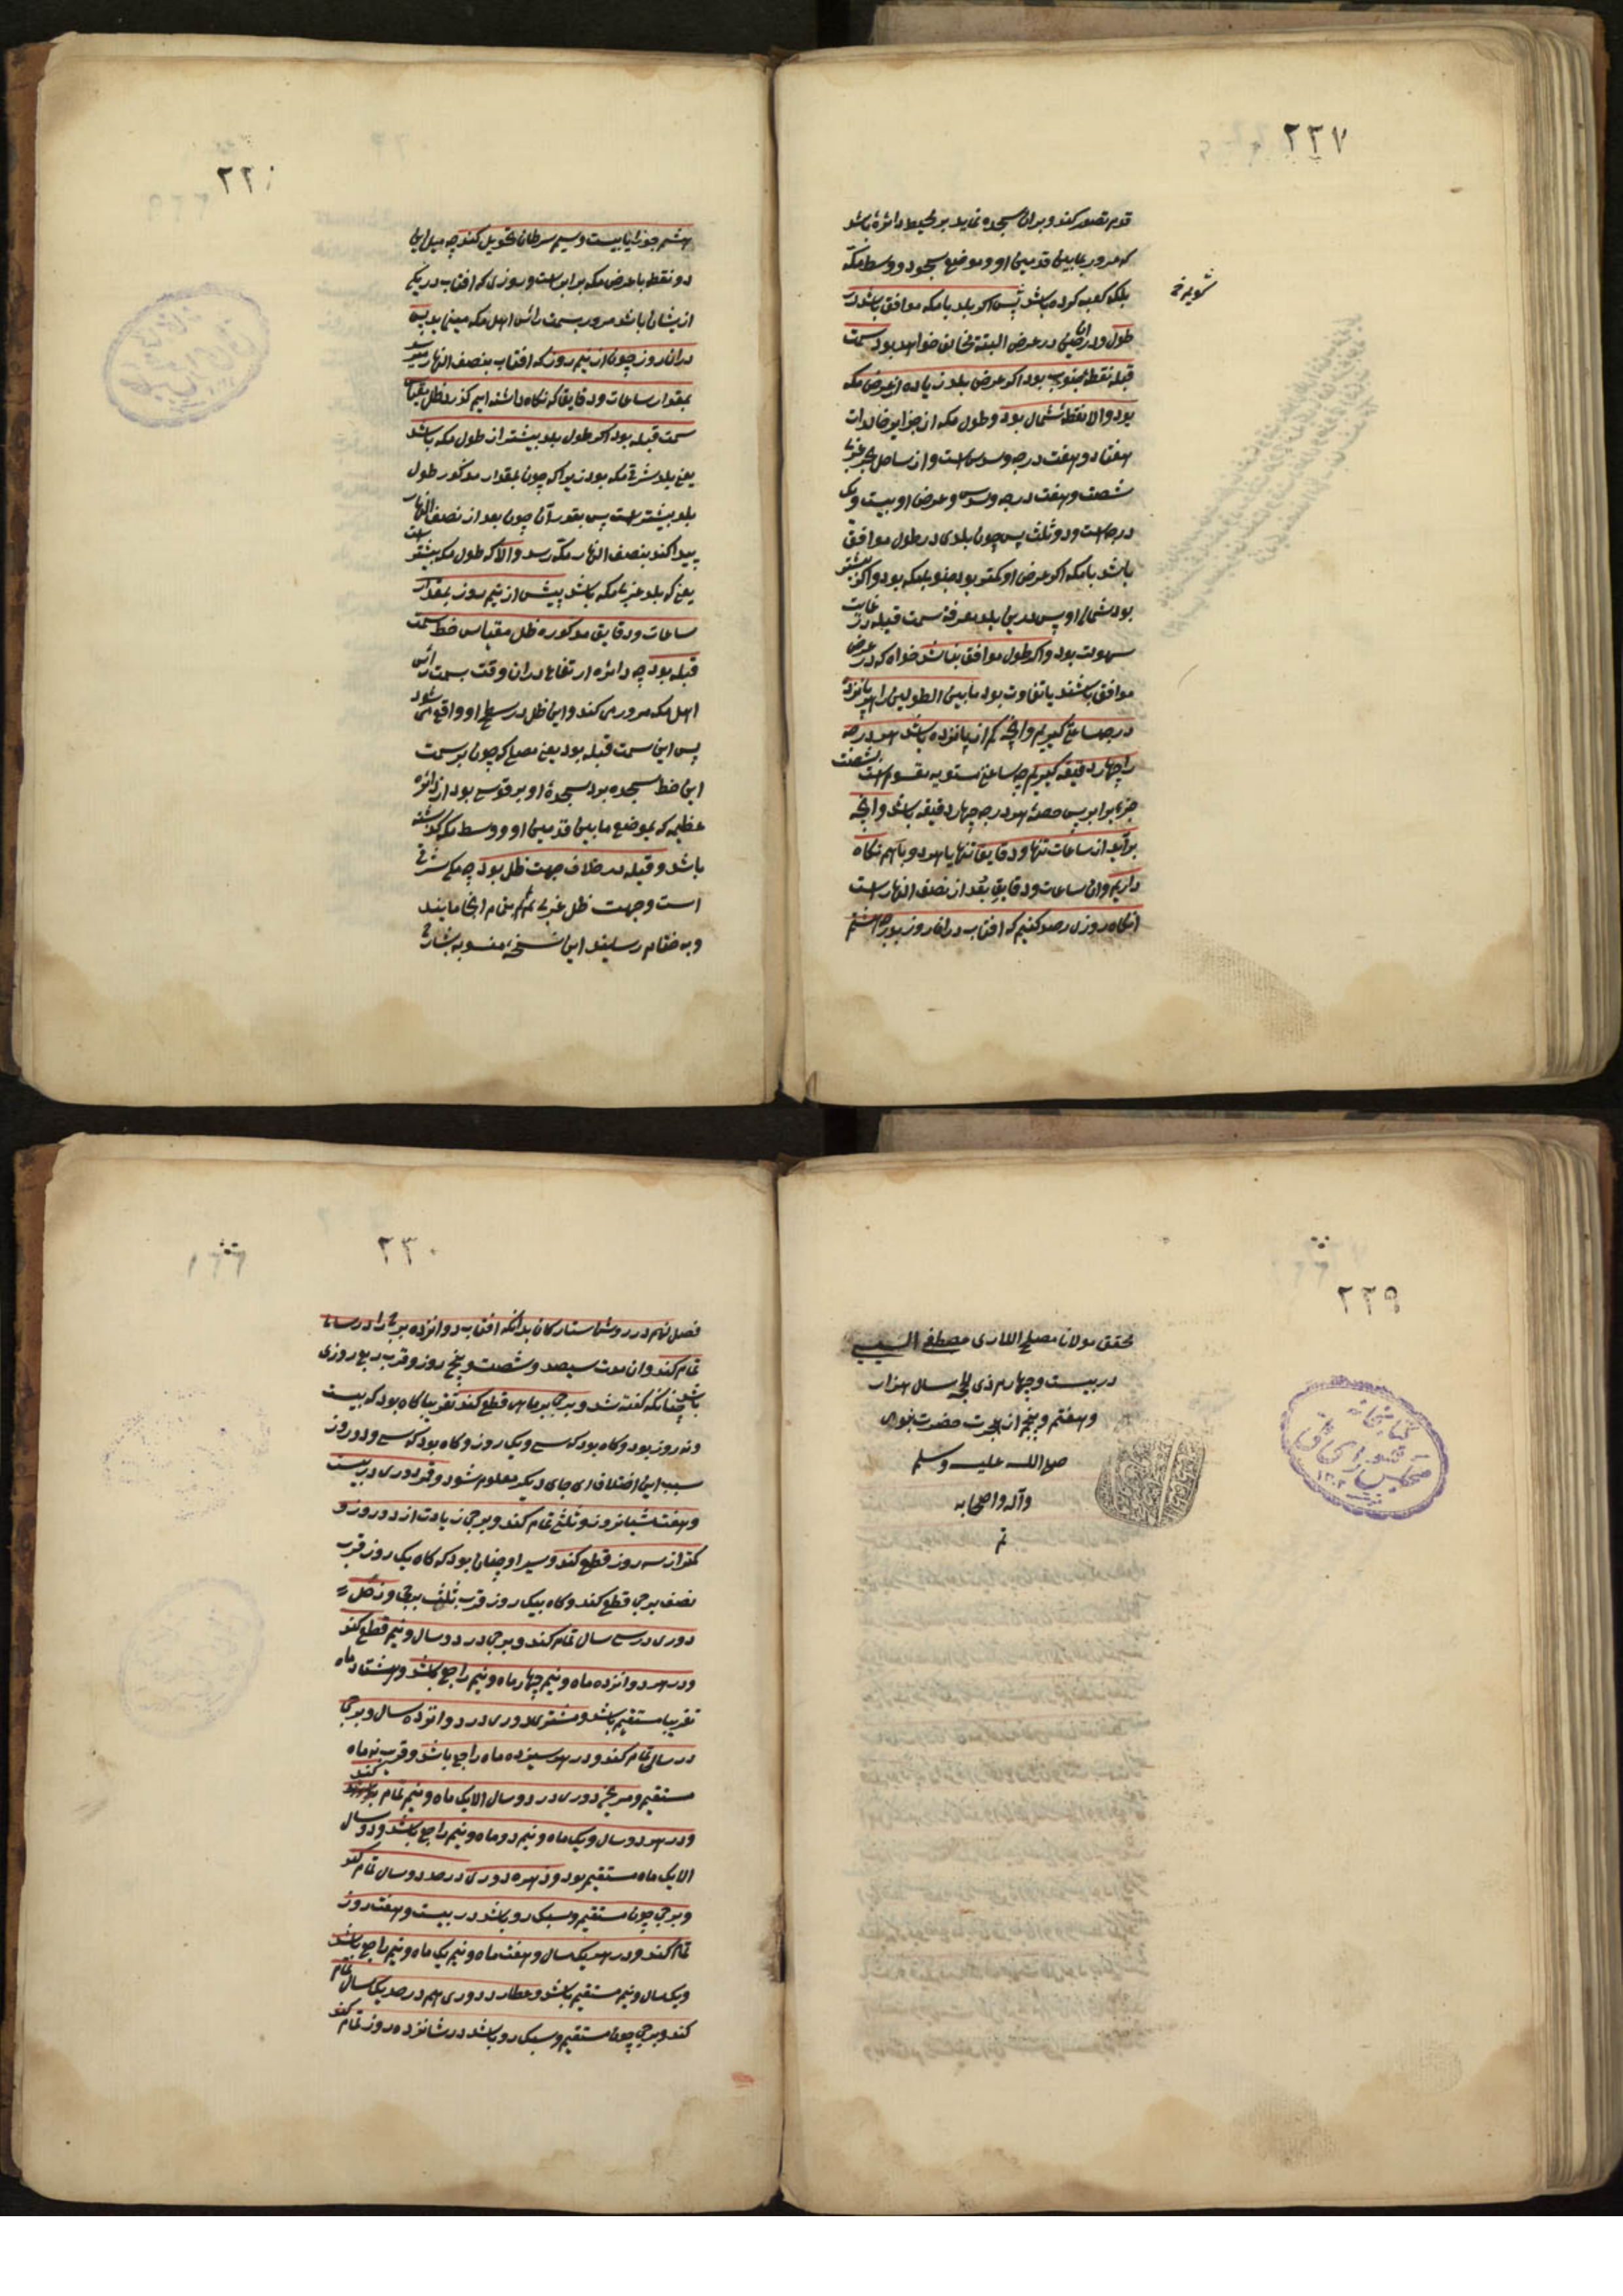 ۲۲۷
قدم تصور کند و بران سجده نماید بر محیط دائرهٔ باشد
که مرور بمابین قدمین او و موضع سجود و وسط مکه
بلکه کعبه کرده باشد پس اکر بلد با مکه موافق باشد در
طول و درین آن در عرض البته مخالف خواهد بود سمت
قبله نقطهٔ جنوب بود اکر عرض بلد زیاده از عرض مکه
بود والا نقطهٔ شمال بود و طول مکه از جزایر خالدات
هفتاد و هفت درجه و سدس است و از ساحل بحر غربی
شصت و هفت درجه و سدس و عرض او بیست و یک
درجه است و دو ثلث پس چون بلدی در طول موافق
باشد با مکه اکر عرض او کمتر بود جنوب مکه بود و اکر بیشتر
بود شمالی او پس درین بلد معرفة سمت قبله در غایت
سهولت بود و اکر طول موافق نباشد خواه که در عرض
موافق باشند یا تفاوت بود ما بین الطولین را هر پانزده
درجه ساعتی کیریم و آنچه کم از پانزده باشد هر درجه
را چهار دقیقه کیریم چه ساعتی مستویه مقسوم است بشصت
جزء برابر پس حصهٔ هر درجه چهار دقیقه باشد و آنچه
برآید از ساعات تنها و دقایق تنها یا هر دو با هم نکاه
داریم و ان ساعت و دقایق بعد از نصف النهار است
انکاه روزی رصد کنیم که افتاب دران روز بدرجه هشتم
۲۲
هشتم جوزا یا بیست و سیم سرطان تحویل کند چه میل این
دو نقطه با عرض مکه برابر است و روزی که افتاب در یکی
ازیشان باشد مرور سمت رأس اهل مکه میکند پس
دران روز چون از نیم روز که افتاب بنصف النهار رسد
بمقدار ساعات و دقایق که نکاه داشته ایم کذرد ظل مقیاس
سمت قبله بود اکر طول بلد بیشتر از طول مکه باشد
یعنی بلد شرقی مکه بود زیرا که چون بمقدار مذکور طول
بلد بیشتر است پس بقدر آن چون بعد از نصف النهار
پیدا کند بنصف النهار مکه رسد و الا که طول مکه بیشتر است
یعنی که بلد غربی مکه باشد پیش از نیم روز بمقدار
ساعات و دقایق مذکوره ظل مقیاس خط سمت
قبله بود چه دائره ارتفاع دران وقت بسمت رأس
اهل مکه مرور می کند و این ظل در سطح او واقع می شود
پس این سمت قبله بود یعنی مصلی که چون بر سمت
این خط سجده برد سجدهٔ او بر قوسی بود از دائره
عظیمه که بموضع ما بین قدمین او و وسط مکه کذشته
باشد و قبله در خلاف جهت ظل بود چه مکه شرقی
است و جهت ظل غربی
و به ختام رسید این نسخهٔ منسوبه بشارح
۲۲۹
محقق مولانا مصلح اللاری مصطفی
در بیست و چهارم ذی الحجه سال هزار
و هفتم و پنجم از هجرت حضرت نبوی
صلی الله علیه وسلم
وآله واصحابه
تم
کتابخانه
مجلس شورای ملی
۲۳۰
فصل نهم در روش ستارکان بدانکه افتاب دوازده برج را در سالی
تمام کند و ان مدت سیصد و شصت و پنج روز و قرب ربع روزی
باشد چنانکه کفته شد و برجی بر ماهی قطع کند تقریبا کاه بود که بیست
و نه روز بود و کاه بود که سی و یک روز و کاه بود که سی و دو روز
سبب این اختلاف ای جای دیکر معلوم شود و قمر دوری در بیست
و هفت شبانروز و ثلثی تمام کند و برجی زیادت از دو روز و
کمتر از سه روز قطع کند و سیر او چنان بود که کاه یک روز قرب
نصف برجی قطع کند و کاه بیک روز قرب ثلث برجی و زحل
دوری در سی سال تمام کند و برجی در دو سال و نیم قطع کند
و در هر دوازده ماه و نیم چهار ماه و نیم راجع باشد و هشت ماه
تقریبا مستقیم باشد و مشتری دوری در دوازده سال و برجی
در سالی تمام کند و در هر سیزده ماه راجع باشد و قرب نه ماه
مستقیم و مریخ دوری در دو سال الا یک ماه و نیم تمام کند
و در هر دو سال و یک ماه و نیم دو ماه و نیم راجع باشد و دو سال
الا یک ماه مستقیم بود و زهره دوری در حد دو سال تمام کند
و برجی چون مستقیم و سبک رو باشد در بیست و هفت روز
تمام کند و در هر یک سال و هفت ماه و نیم یک ماه و نیم راجع باشد
و یک سال و نیم مستقیم باشد و عطارد دوری هم در حد یک سال تمام
کند و برجی چون مستقیم و سبک رو باشد در شانزده روز تمام کند